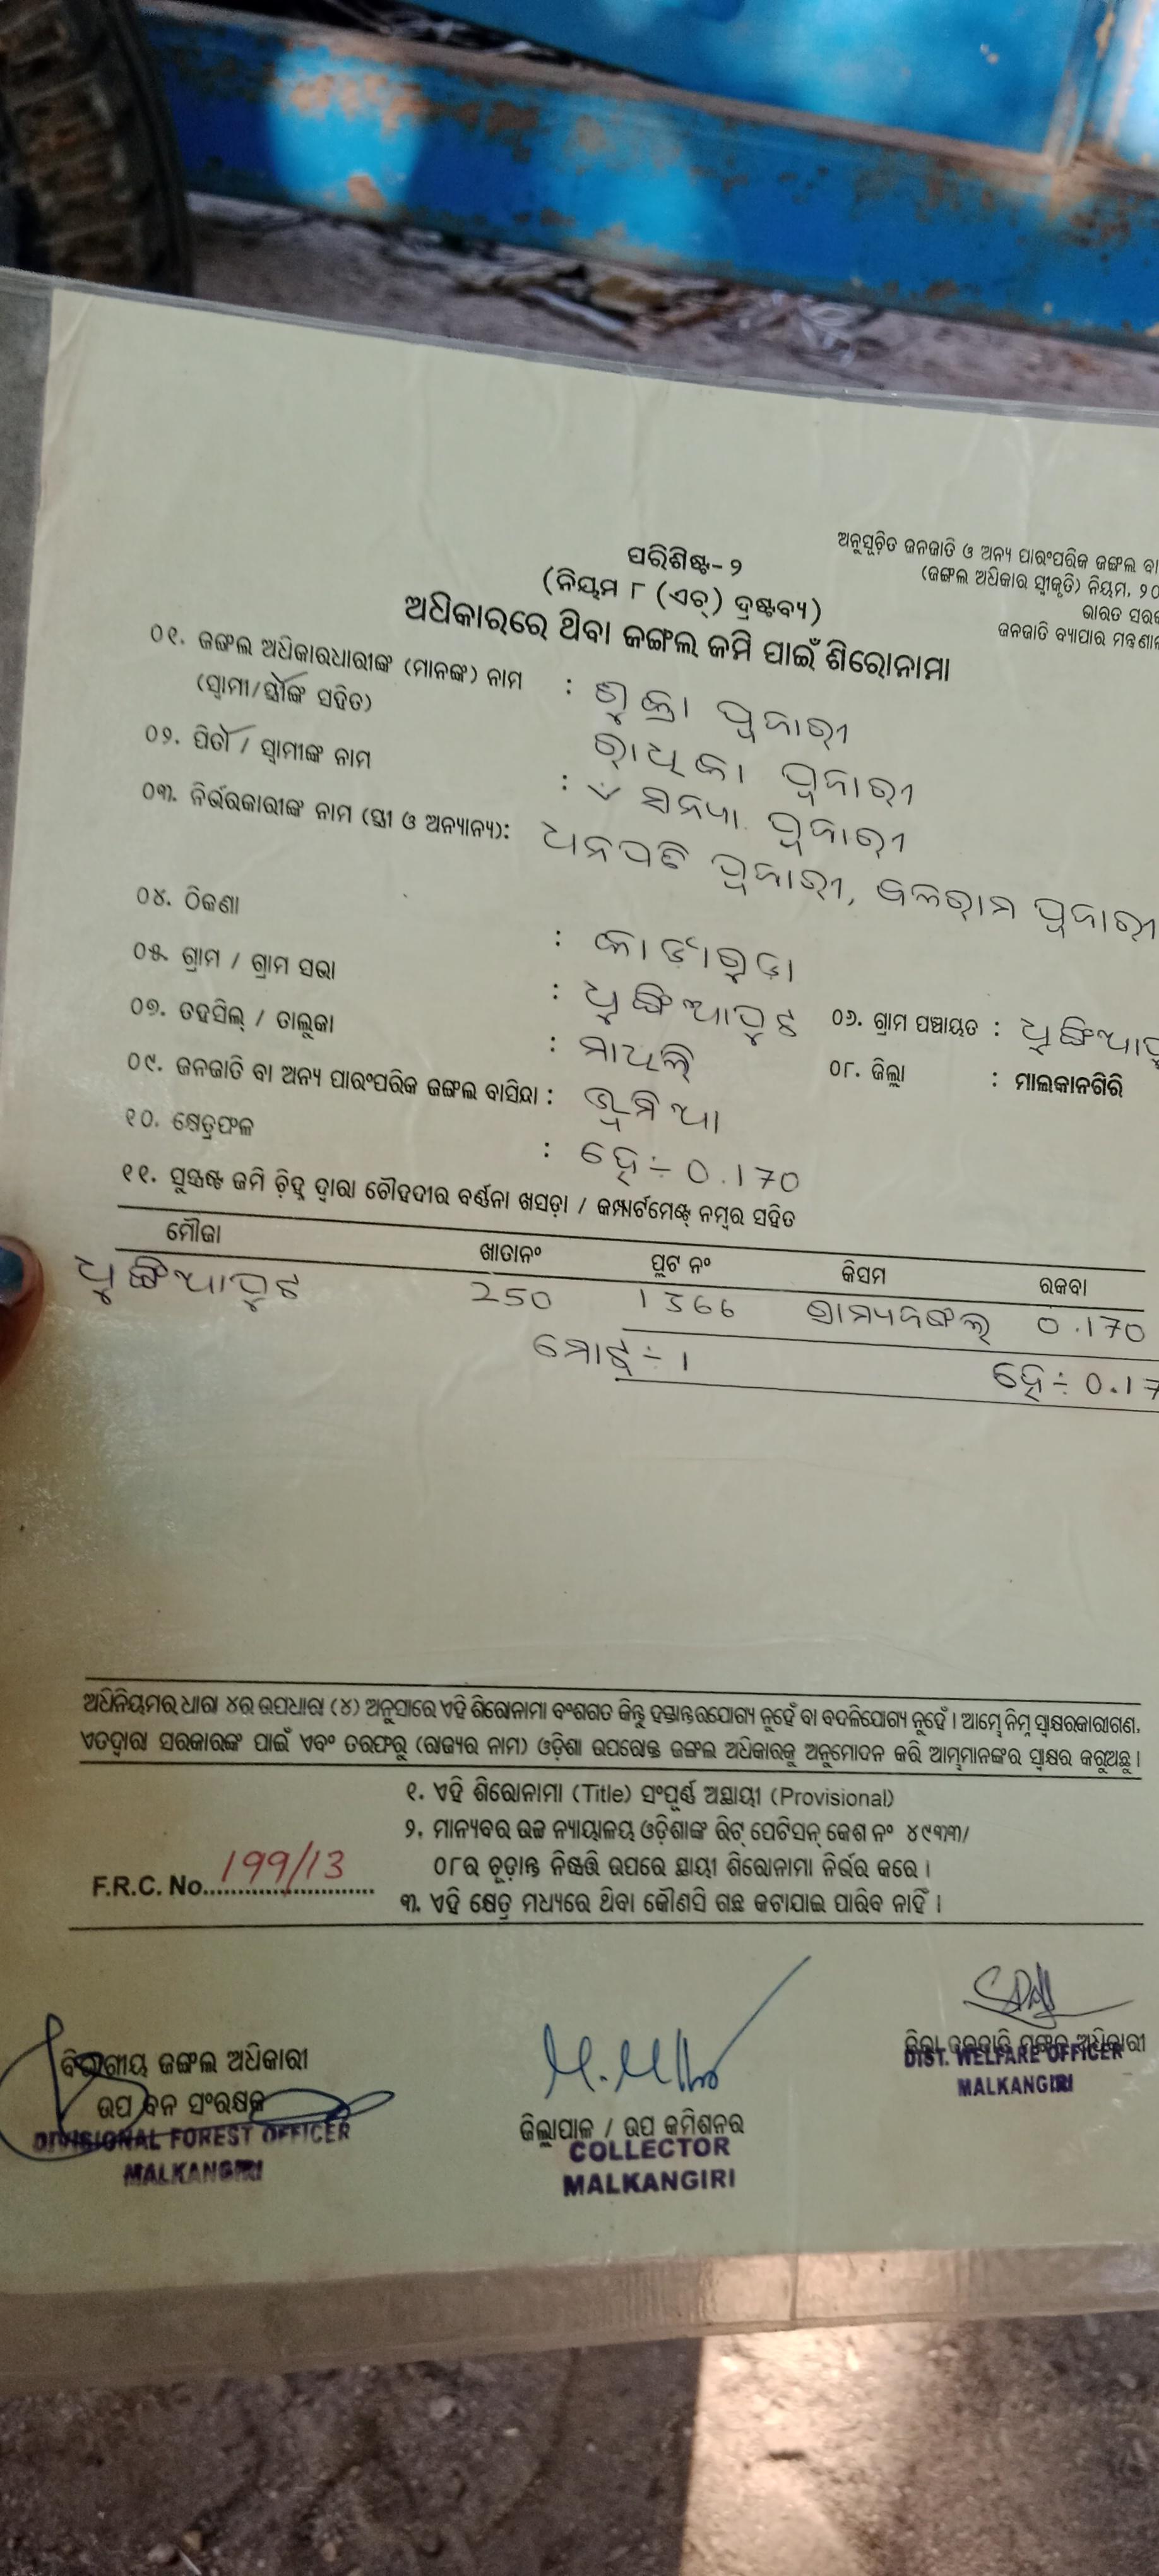 ପରିଶିଷ୍ଟ-୨
(ନିୟମ ୮ (ଏଚ୍) ଦ୍ରଷ୍ଟବ୍ୟ)
ଅନୁସୂଚିତ ଜନଜାତି ଓ ଅନ୍ୟ ପାରଂପରିକ ଜଙ୍ଗଲ ବା
(ଜଙ୍ଗଲ ଅଧିକାର ସ୍ୱୀକୃତି) ନିୟମ, ୨୦
ଭାରତ ସରକ
ଜନଜାତି ବ୍ୟାପାର ମନ୍ତ୍ରଣା
ଅଧିକାରରେ ଥିବା ଜଙ୍ଗଲ ଜମି ପାଇଁ ଶିରୋନାମା
୦୧. ଜଙ୍ଗଲ ଅଧିକାରଧାରୀଙ୍କ (ମାନଙ୍କ) ନାମ : ଶୁକ୍ରା ପୂଜାରୀ
(ସ୍ୱାମୀ/ସ୍ତ୍ରୀଙ୍କ ସହିତ) ରାଧିକା ପୂଜାରୀ
୦୨. ପିତା / ସ୍ୱାମୀଙ୍କ ନାମ : ସନ୍ୟା ପୂଜାରୀ
୦୩. ନିର୍ଭରକାରୀଙ୍କ ନାମ (ସ୍ତ୍ରୀ ଓ ଅନ୍ୟାନ୍ୟ): ଧନପତି ପୂଜାରୀ, ବଳରାମ ପୂଜାରୀ
୦୪. ଠିକଣା :
୦୫. ଗ୍ରାମ / ଗ୍ରାମ ସଭା : ଧୁଙ୍ଗିଆପୁଟ ୦୬. ଗ୍ରାମ ପଞ୍ଚାୟତ : ଧୁଙ୍ଗିଆପୁ
୦୭. ତହସିଲ୍ / ତାଲୁକା : ମାଥିଲି ୦୮. ଜିଲ୍ଲା : ମାଲକାନଗିରି
୦୯. ଜନଜାତି ବା ଅନ୍ୟ ପାରଂପରିକ ଜଙ୍ଗଲ ବାସିନ୍ଦା : ଭୂମିଆ
୧୦. କ୍ଷେତ୍ରଫଳ : ହେ÷ 0.170
୧୧. ସୁସ୍ପଷ୍ଟ ଜମି ଚିହ୍ନ ଦ୍ୱାରା ଚୌହଦୀର ବର୍ଣ୍ଣନା ଖସଡ଼ା / କମ୍ପାର୍ଟମେଣ୍ଟ୍ ନମ୍ବର ସହିତ
ମୌଜା ଖାତାନଂ ପ୍ଲଟ ନଂ କିସମ ରକବା
ଧୁଙ୍ଗିଆପୁଟ 250 1366 ଗ୍ରାମ୍ୟଜଙ୍ଗଲ 0.170
ମୋଟ÷ 1 ହେ÷ 0.17
ଅଧିନିୟମର ଧାରା ୪ର ଉପଧାରା (୪) ଅନୁସାରେ ଏହି ଶିରୋନାମା ବଂଶଗତ କିନ୍ତୁ ହସ୍ତାନ୍ତରଯୋଗ୍ୟ ନୁହେଁ ବା ବଦଳିଯୋଗ୍ୟ ନୁହେଁ । ଆମ୍ଭେ ନିମ୍ନ ସ୍ୱାକ୍ଷରକାରୀଗଣ,
ଏତଦ୍ୱାରା ସରକାରଙ୍କ ପାଇଁ ଏବଂ ତରଫରୁ (ରାଜ୍ୟର ନାମ) ଓଡ଼ିଶା ଉପରୋକ୍ତ ଜଙ୍ଗଲ ଅଧିକାରକୁ ଅନୁମୋଦନ କରି ଆମ୍ଭମାନଙ୍କର ସ୍ୱାକ୍ଷର କରୁଅଛୁ ।
୧. ଏହି ଶିରୋନାମା (Title) ସଂପୂର୍ଣ୍ଣ ଅସ୍ଥାୟୀ (Provisional)
୨. ମାନ୍ୟବର ଉଚ୍ଚ ନ୍ୟାୟାଳୟ ଓଡ଼ିଶାଙ୍କ ରିଟ୍ ପେଟିସନ୍ କେଶ ନଂ ୪୯୩୩/
୦୮ର ଚୂଡ଼ାନ୍ତ ନିଷ୍ପତ୍ତି ଉପରେ ସ୍ଥାୟୀ ଶିରୋନାମା ନିର୍ଭର କରେ ।
F.R.C. No. 199/13
୩. ଏହି କ୍ଷେତ୍ର ମଧ୍ୟରେ ଥିବା କୌଣସି ଗଛ କଟାଯାଇ ପାରିବ ନାହିଁ ।
ବିଭାଗୀୟ ଜଙ୍ଗଲ ଅଧିକାରୀ
ଉପ ବନ ସଂରକ୍ଷକ
DIVISIONAL FOREST OFFICER
MALKANGIRI
ଜିଲ୍ଲାପାଳ / ଉପ କମିଶନର
COLLECTOR
MALKANGIRI
ଜିଲ୍ଲା ଜନଜାତି ମଙ୍ଗଳ ଅଧିକାରୀ
DIST. WELFARE OFFICER
MALKANGIRI